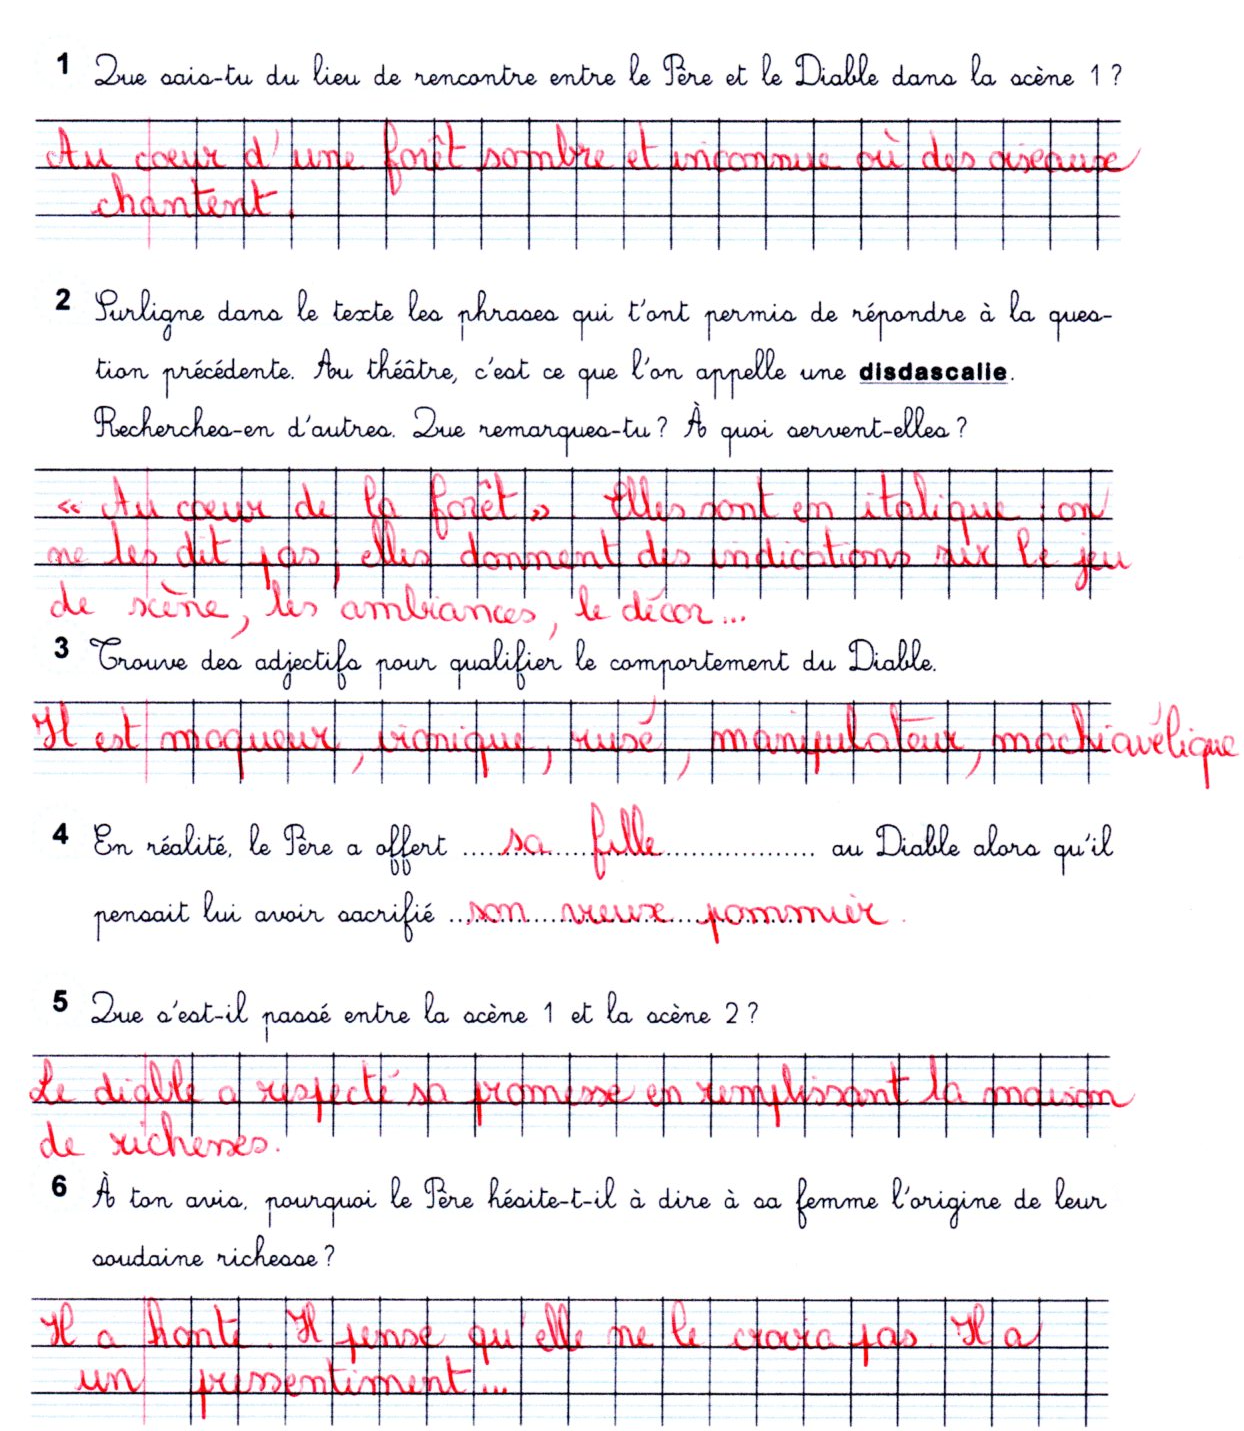 1 Que sais-tu du lieu de rencontre entre le Père et le Diable dans la scène 1 ?
Au coeur d'une forêt sombre et inconnue où des oiseaux
chantent.
2 Surligne dans le texte les phrases qui t'ont permis de répondre à la ques-
tion précédente. Au théâtre, c'est ce que l'on appelle une disdascalie.
Recherches-en d'autres. Que remarques-tu ? À quoi servent-elles ?
« Au coeur de la forêt ». Elles sont en italique : on
ne les dit pas ; elles donnent des indications sur le jeu
de scène, les ambiances, le décor...
3 Trouve des adjectifs pour qualifier le comportement du Diable.
Il est moqueur, ironique, rusé, manipulateur, machiavélique
4 En réalité, le Père a offert ..... sa fille ..... au Diable alors qu'il
pensait lui avoir sacrifié ..... son vieux pommier.
5 Que s'est-il passé entre la scène 1 et la scène 2 ?
Le diable a respecté sa promesse en remplissant la maison
de richesses.
6 À ton avis, pourquoi le Père hésite-t-il à dire à sa femme l'origine de leur
soudaine richesse ?
Il a honte. Il pense qu'elle ne le croira pas. Il a
un pressentiment...